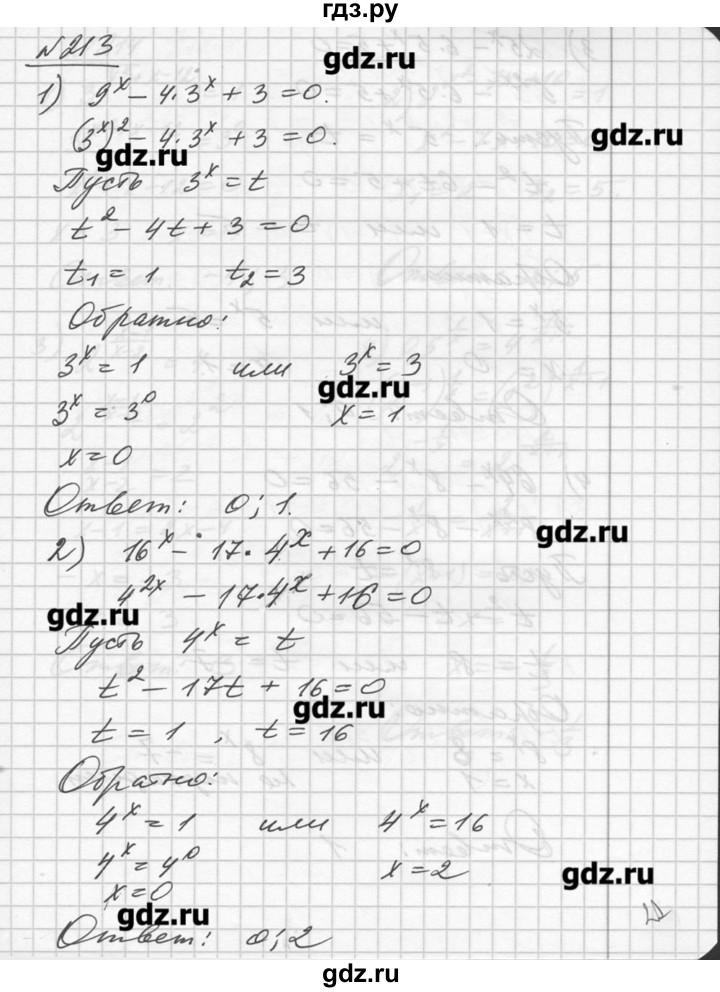 гдз.ру
№213
gdz.ru
1) 9^x - 4·3^x + 3 = 0.
(3^x)^2 - 4·3^x + 3 = 0.
gdz.ru
gdz.ru
Пусть 3^x = t
t^2 - 4t + 3 = 0
t₁ = 1 t₂ = 3
Обратно:
3^x = 1 или 3^x = 3
gdz.ru
3^x = 3^0 x = 1
x = 0
Ответ: 0; 1.
gdz.ru
2) 16^x - 17·4^x + 16 = 0
4^{2x} - 17·4^x + 16 = 0
gdz.ru
Пусть 4^x = t
t^2 - 17t + 16 = 0
gdz.ru
t = 1 , t = 16
Обратно:
4^x = 1 или 4^x = 16
4^x = 4^0 x = 2
gdz.ru
x = 0
gdz.ru
Ответ: 0; 2
gdz.ru